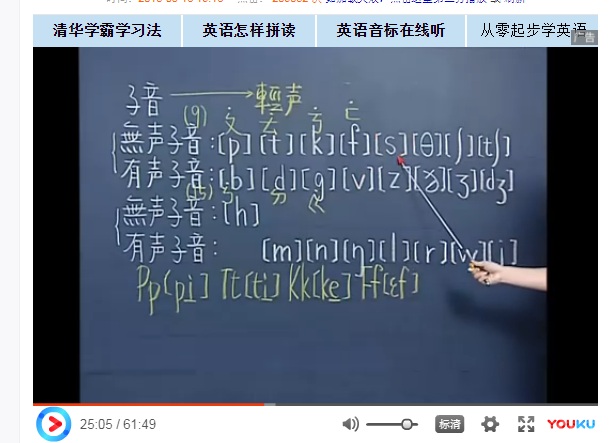 清华学霸学习法 英语怎样拼读 英语音标在线听 从零起步学英语
广告
子音 → 輕声
(9) ㄆ ㄊ ㄎ ㄈ
無声子音:[p][t][k][f][s][θ][ʃ][tʃ]
有声子音:[b][d][g][v][z][ð][ʒ][dʒ]
(15) ㄅ ㄉ ㄍ
無声子音:[h]
有声子音: [m][n][ŋ][l][r][w][j]
Pp[pi] Tt[ti] Kk[ke] Ff[εf]
25:05 / 61:49 标清 YOUKU